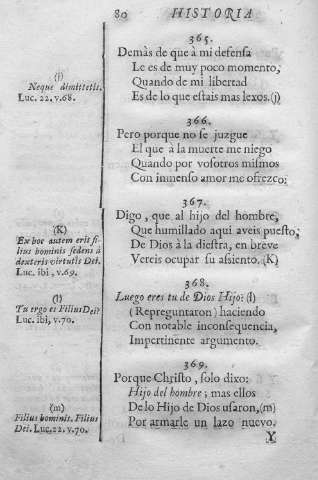 80 HISTORIA
365.
Demàs de que à mi defensa
Le es de muy poco momento,
Quando de mi libertad
Es de lo que estais mas lexos.(j)
(j)
Neque dimittetis.
Luc. 22. v.68.
366.
Pero porque no se juzgue
El que à la muerte me niego
Quando por vosotros mismos
Con inmenso amor me ofrezco:
367.
Digo, que al hijo del hombre,
Que humillado aqui aveis puesto,
De Dios à la diestra, en breve
Vereis ocupar su asiento. (K)
(K)
Ex hoc autem erit fi-
lius hominis sedens à
dexteris virtutis Dei.
Luc. ibi, v.69.
368.
Luego eres tu de Dios Hijo? (l)
(Repreguntaron) haciendo
Con notable inconsequencia,
Impertinente argumento.
(l)
Tu ergo es Filius Dei?
Luc. ibi, v.70.
369.
Porque Christo, solo dixo:
Hijo del hombre; mas ellos
De lo Hijo de Dios usaron, (m)
Por armarle un lazo nuevo.
(m)
Filius hominis. Filius
Dei. Luc. 22. v.70.
Y